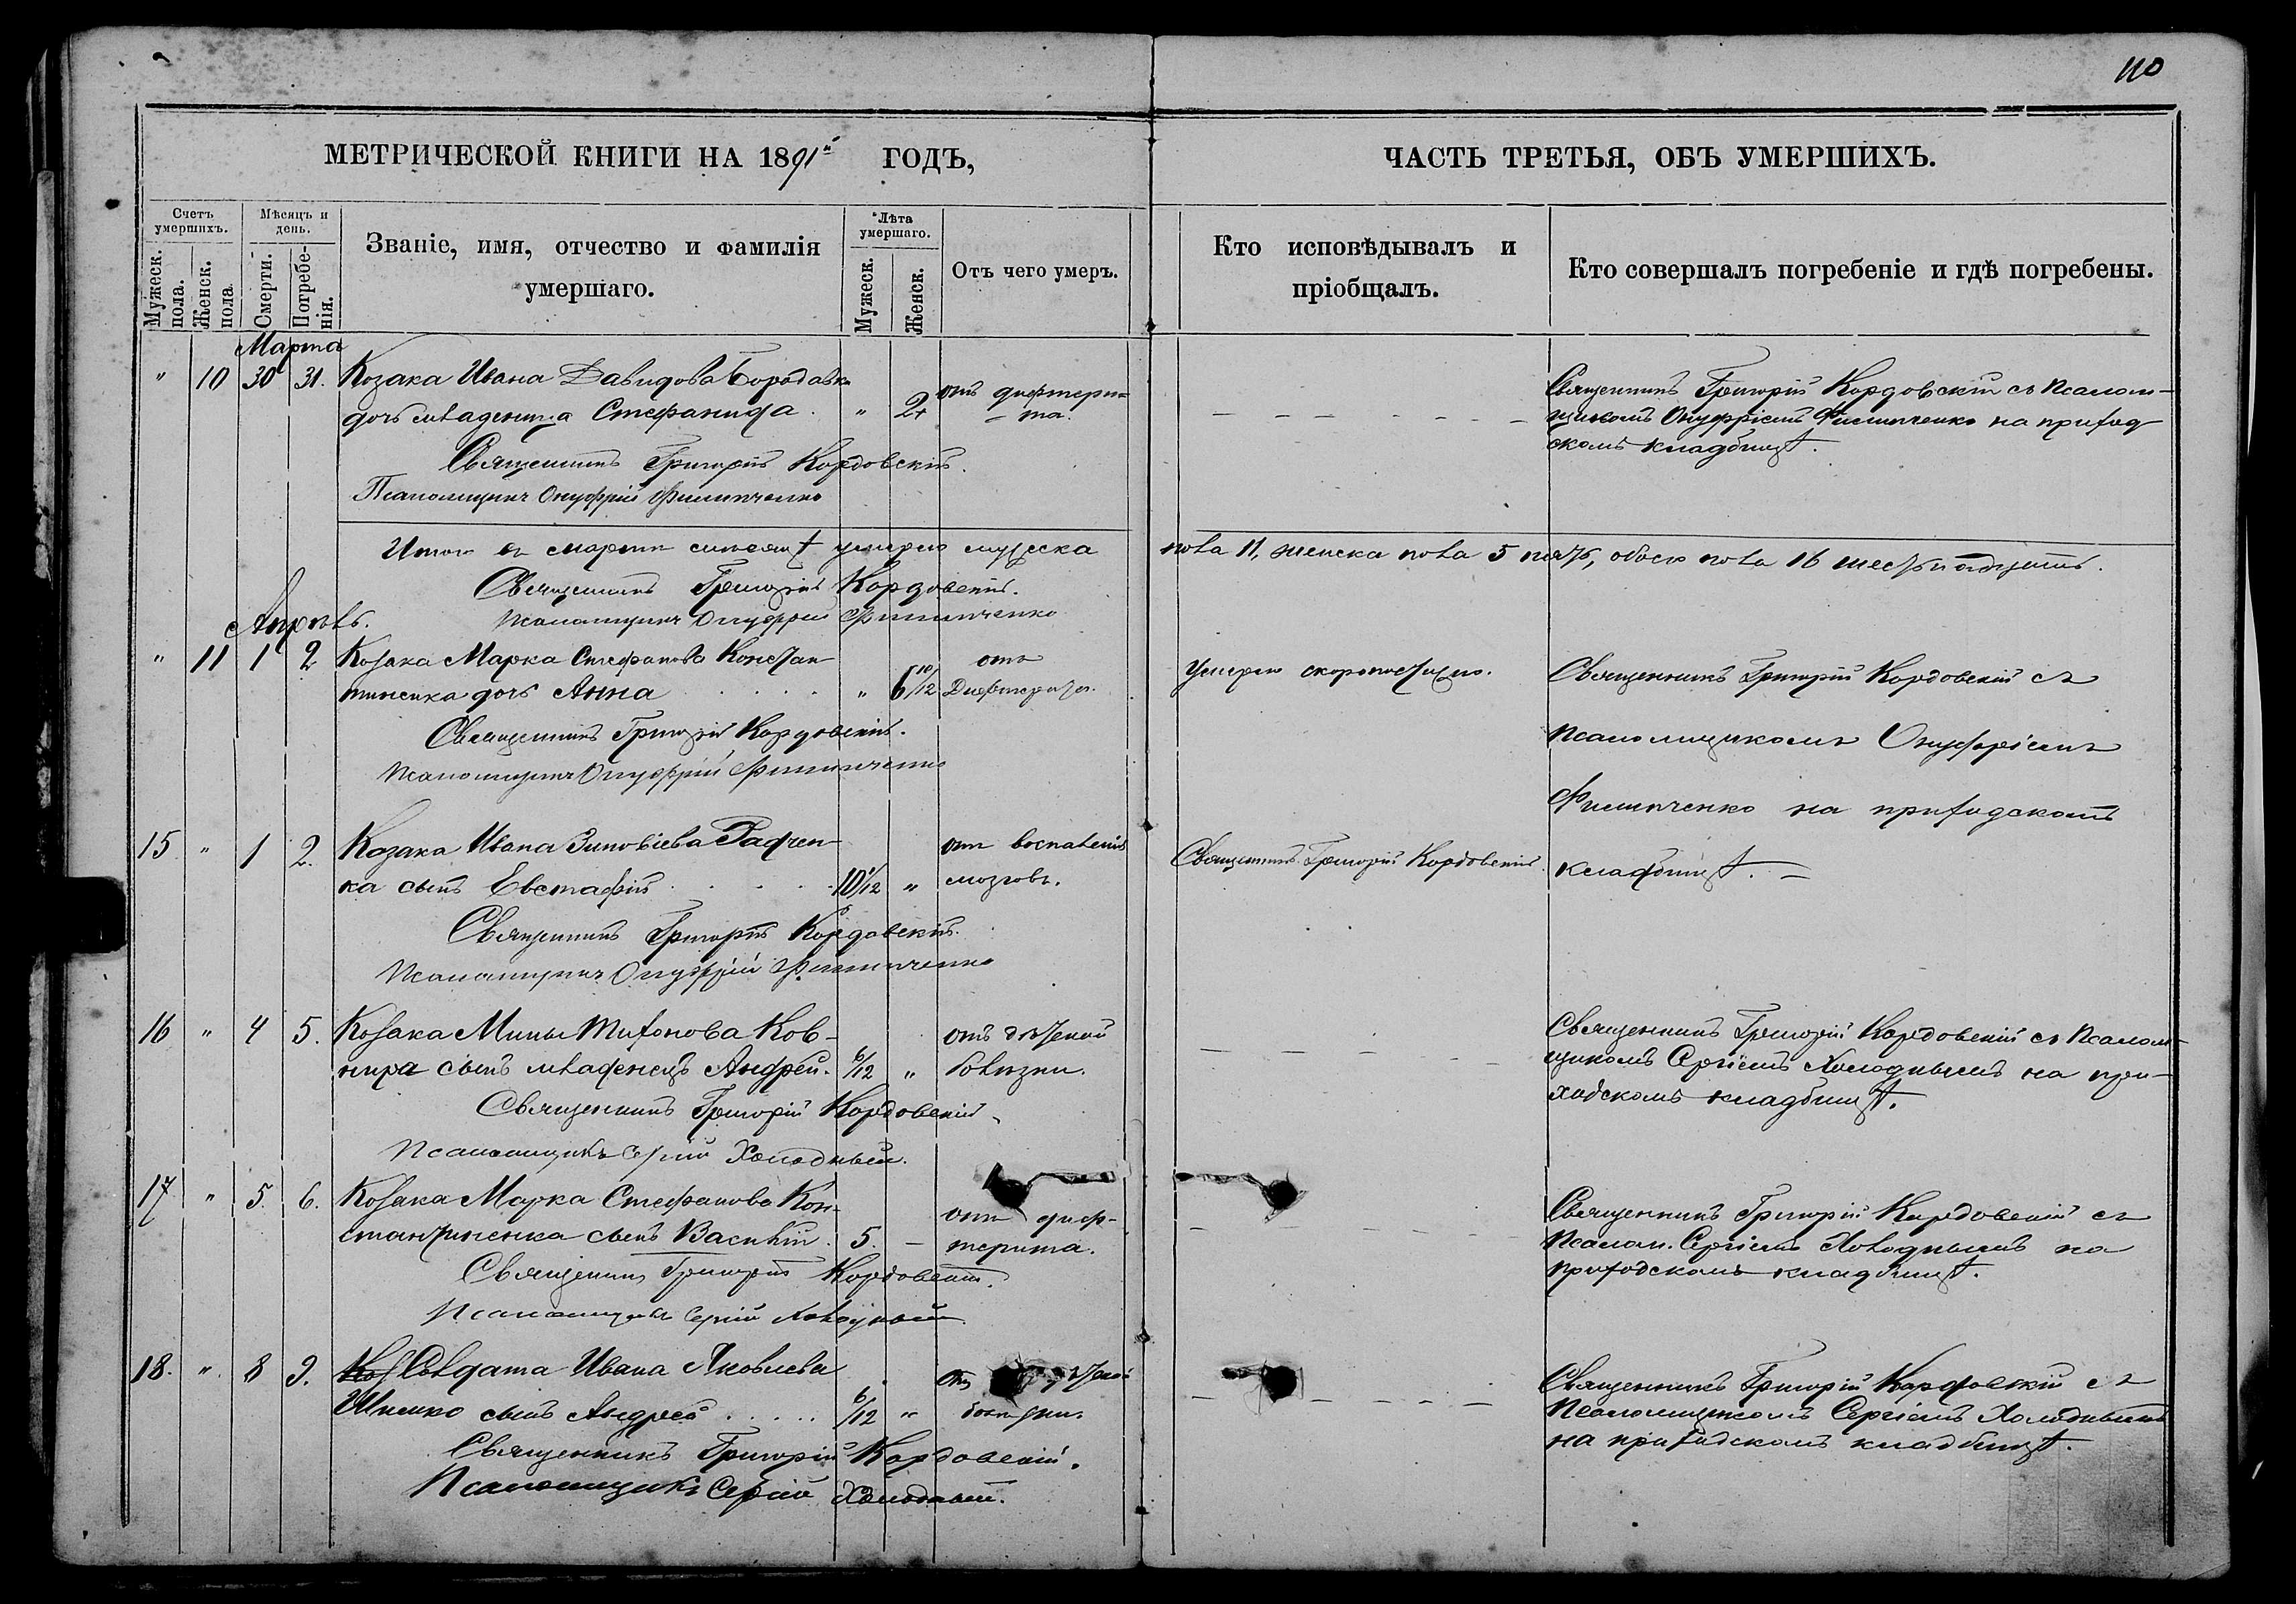 110
МЕТРИЧЕСКОЙ КНИГИ НА 1891й ГОДЪ,
ЧАСТЬ ТРЕТЬЯ, ОБЪ УМЕРШИХЪ.
Счетъ умершихъ.
Мужеск. пола.
Женск. пола
Мѣсяцъ и день.
Смерти.
Погребенія.
Званіе, имя, отчество и фамилія
умершаго.
Лѣта умершаго.
Мужеск.
Женск.
Отъ чего умеръ.
Кто исповѣдывалъ и
пріобщалъ.
Кто совершалъ погребеніе и гдѣ погребены.
Марта
" 10 30 31. Козака Ивана Давидова Бородавки отъ дифтери- Священникъ Григорій Кордовскій съ Псалом-
дочь младеница Стефанида " 2 та. щикомъ Онуфріемъ Филипченко на приход
скомъ кладбищѣ.
Священникъ Григорій Кордовскій.
Псаломщикъ Онуфрій Филипченко
Итого въ мартѣ мѣсяцѣ умерло мужеска пола 11, женска пола 5 пять, обоего пола 16 шестьнадцать.
Священникъ Григорій Кордовскій.
Псаломщикъ Онуфрій Филипченко
Апрѣль.
" 11 1 2 Козака Марка Стефанова Констан- отъ Умерла скоропостижно. Священникъ Григорій Кордовскій съ
тиненка дочь Анна " 6 10/12 Дифтерита.
Священникъ Григорій Кордовскій. Псаломщикомъ Онуфріемъ
Псаломщикъ Онуфрій Филипченко
Филипченко на приходскомъ
15 " 1 2. Козака Ивана Зиновіева Радчен- отъ воспаленія Священникъ Григорій Кордовскій кладбищѣ.
ка сынъ Евстафій "мозговъ.
Священникъ Григорій Кордовскій.
Псаломщикъ Онуфрій Филипченко
16 " 4 5. Козака Мины Тихонова Ков- отъ дѣтской Священникъ Григорій Кордовскій съ Псалом-
нира сынъ младенецъ Андрей. 6/12 " болѣзни. щикомъ Сергіемъ Холоднымъ на при-
ходскомъ кладбищѣ.
Священникъ Григорій Кордовскій
Псаломщикъ Сергій Холодный.
17 " 5. 6. Козака Марка Стефанова Кон- отъ диф- Священникъ Григорій Кордовскій съ
стантиненка сынъ Василій. 5. - терита. Псалом. Сергіемъ Холоднымъ на
приходскомъ кладбищѣ.
Священникъ Григорій Кордовскій.
Псаломщикъ Сергій Холодный
18. " 8 9. Солдата Ивана Яковлева Священникъ Григорій Кордовскій съ
сынъ Андрей 6/12 " болѣзни. Псаломщикомъ Сергіемъ Холоднымъ
на приходскомъ кладбищѣ.
Священникъ Григорій Кордовскій.
Псаломщикъ Сергій Холодный.